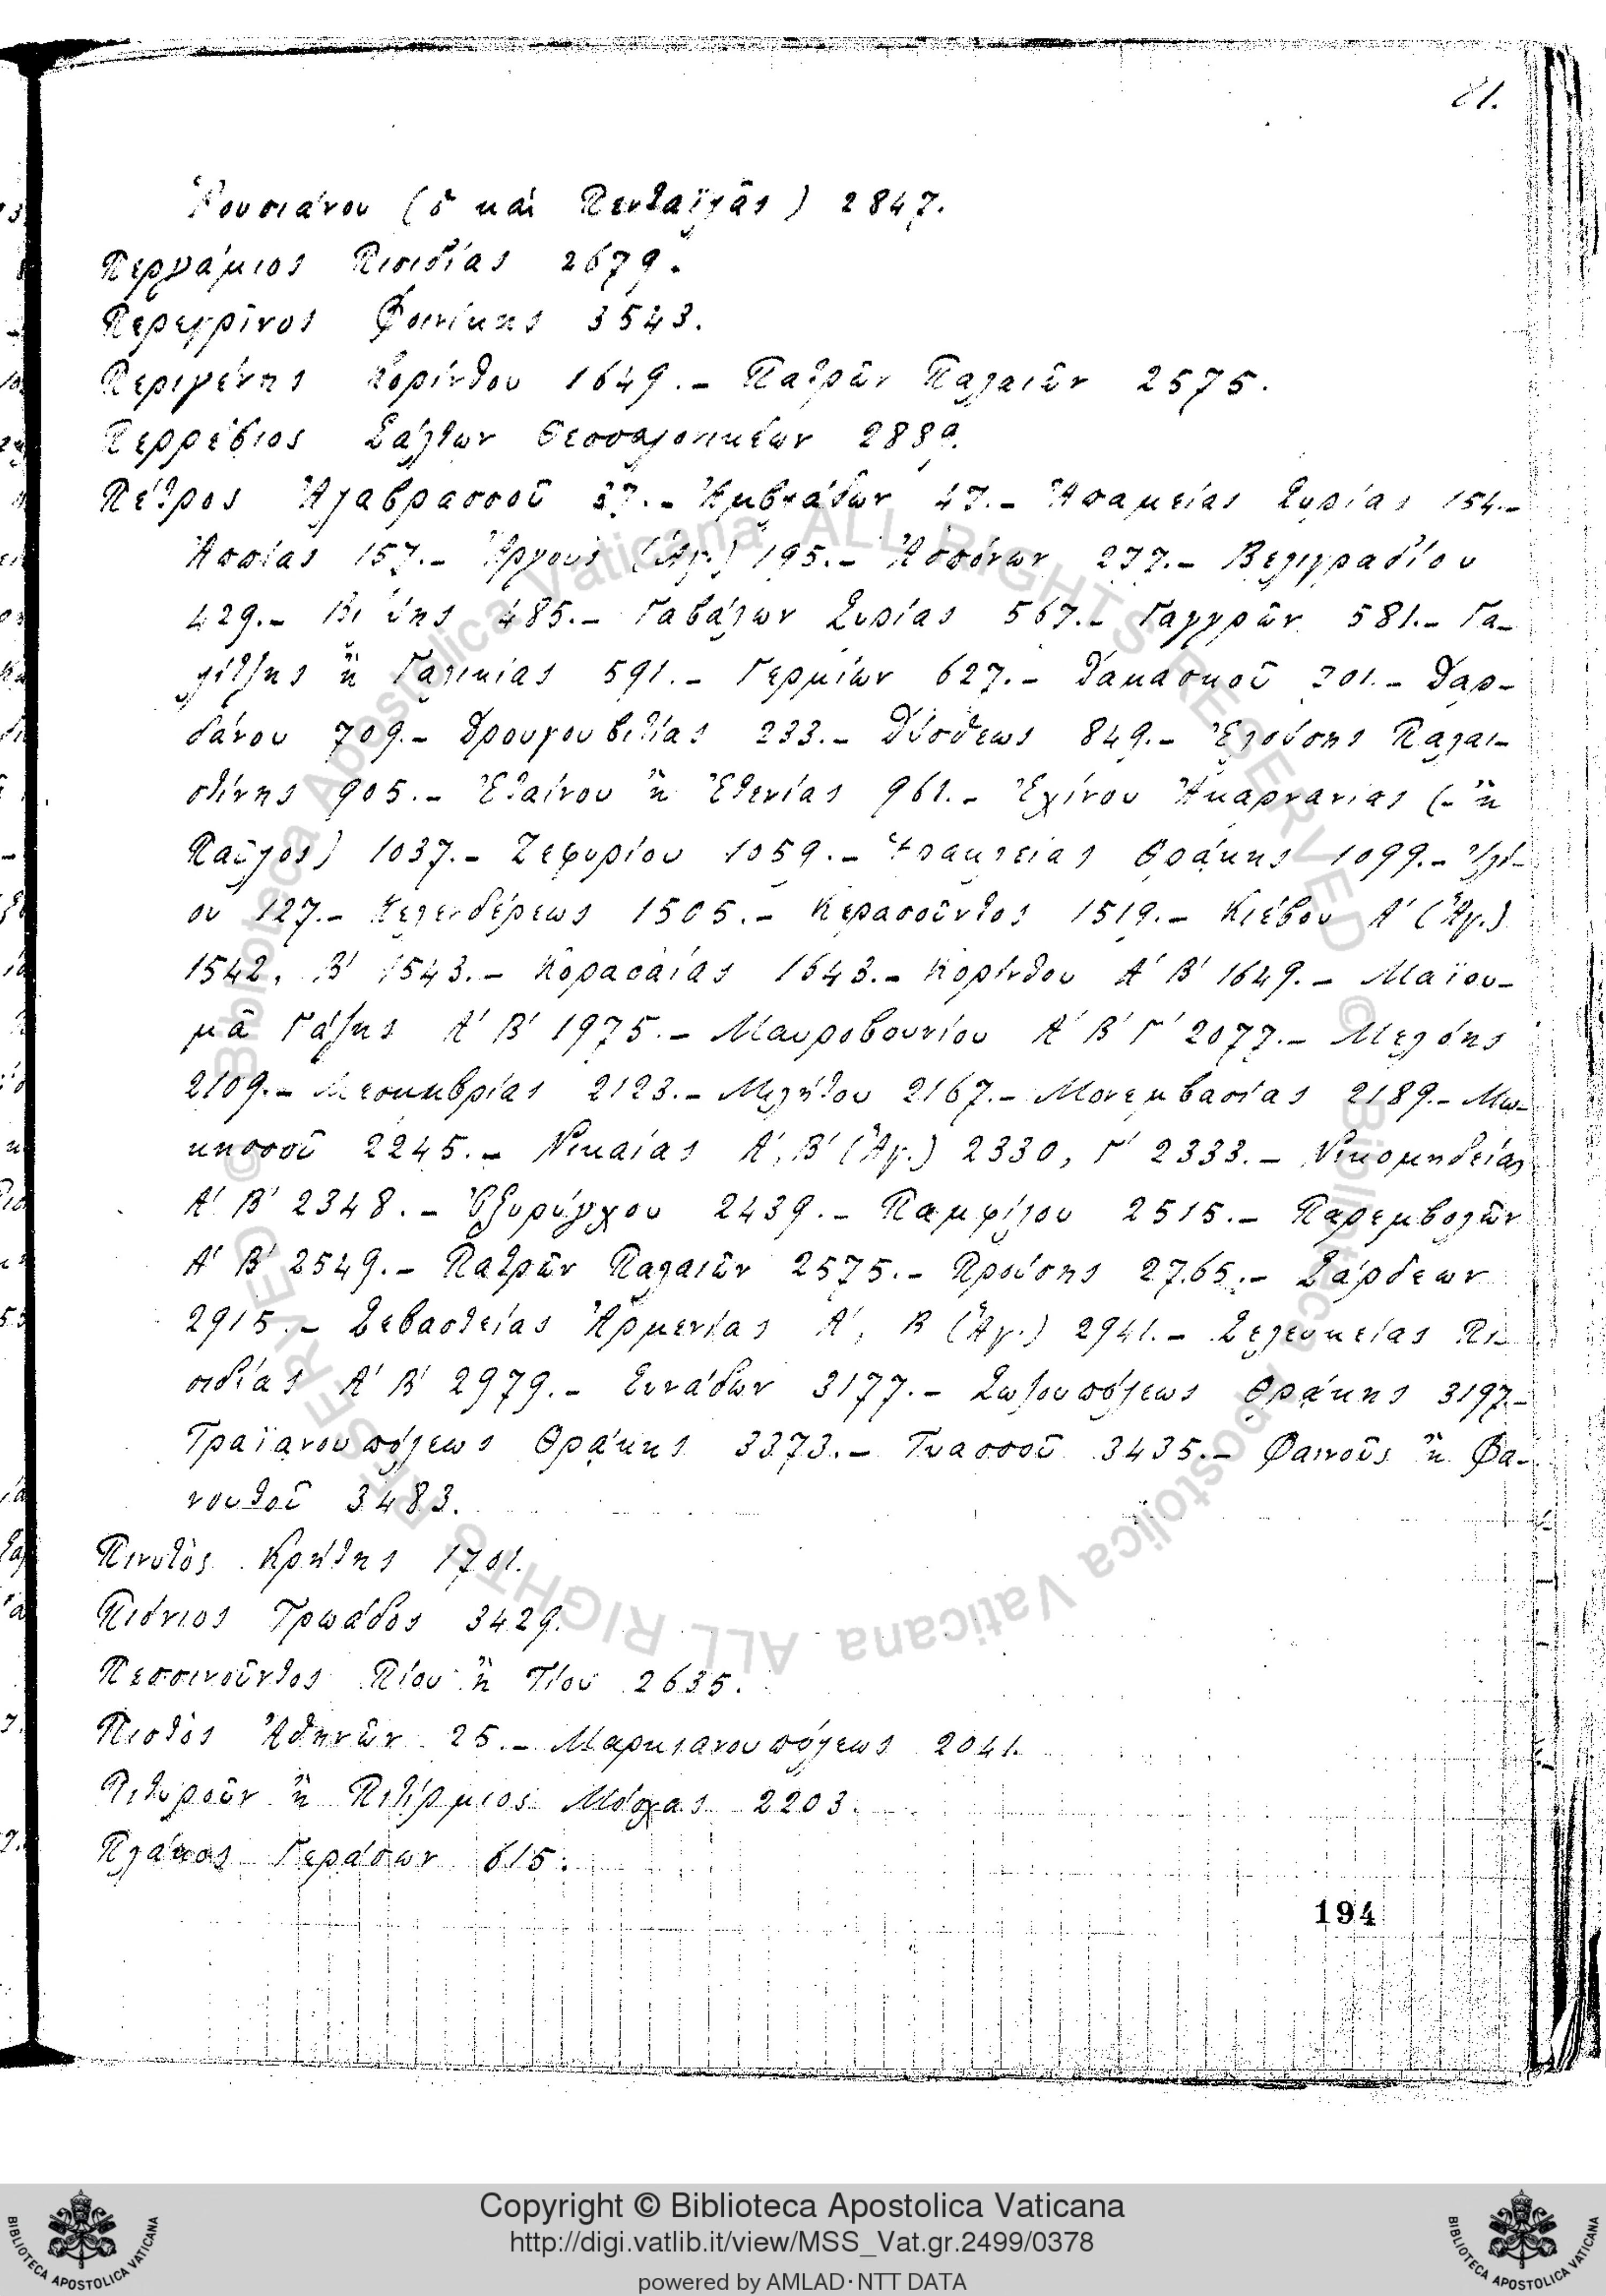 81.
Ῥουσιάνου (ὁ καὶ Πενταϊγᾶς) 2847.
Περγάμιος Πισιδίας 2679.
Περεγρῖνος Φοινίκης 3543.
Περιγένης Κορίνθου 1649.- Πατρῶν Παλαιῶν 2575.
Περρέβιος Σάλτων Θεσσαλονικέων 2889.
Πέτρος Ἀλαβρασσοῦ 37.- Ἀμβλάδων 47.- Ἀπαμείας Συρίας 154.-
Ἀππίας 157.- Ἄργους (Ἅγ.) 195.- Ἀσπόνων 277.- Βελιγραδίου
429.- 485.- Γαβάλων Συρίας 567.- Γαγγρῶν 581.- Γα-
λίτζης ἢ Γαλικίας 591.- Γερμίων 627.- Δαμασκοῦ 701.- Δαρ-
δάνου 709.- Δρουγουβιτίας 233.- 849.- Ἐλούσης Παλαι-
στίνης 905.- Ἐταίνου ἢ Ἐτενίας 961.- Ἐχίνου Ἀκαρνανίας (- ἢ
Παῦλος) 1037.- Ζεφυρίου 1059.- Ἡρακλείας Θράκης 1099.- Ἰλί-
ου 127.- Κελενδέρεως 1505.- Κερασοῦντος 1519.- Κιέβου Α' (Ἅγ.)
1542, Β' 1543.- 1643.- Κορίνθου Α' Β' 1649.- Μαϊου-
μᾶ Γάζης Α' Β' 1975.- Μαυροβουνίου Α' Β' Γ' 2077.- Μελόης
2109.- Μεσημβρίας 2123.- Μιλήτου 2167.- Μονεμβασίας 2189.- Μω-
κησσοῦ 2245.- Νικαίας Α', Β' (Ἅγ.) 2330, Γ' 2333.- Νικομηδείας
Α' Β' 2348.- Ὀξυρύγχου 2439.- Παμφίλου 2515.- Παρεμβολῶν
Α' Β' 2549.- Πατρῶν Παλαιῶν 2575.- Προύσης 2765.- Σάρδεων
2915.- Σεβαστείας Ἀρμενίας Α', Β (Ἅγ.) 2941.- Σελευκείας Πι-
σιδίας Α' Β' 2979.- Συνάδων 3177.- Σωζουπόλεως Θράκης 3197.-
Τραϊανουπόλεως Θράκης 3373.- Τυασσοῦ 3435.- Φαινοῦς ἢ Φα-
νουτοῦ 3483.
Πινυτὸς Κρήτης 1701.
Πιόνιος Τρωάδος 3429.
Πεσσινοῦντος Πίου ἢ Τίου 2635.
Πιστὸς Ἀθηνῶν 25.- Μαρκιανουπόλεως 2041.
Πιτυροῦν ἢ Πιτίρμιος Μόσχας 2203.
Πλάκος Γεράσων 615.
194
Copyright © Biblioteca Apostolica Vaticana
http://digi.vatlib.it/view/MSS_Vat.gr.2499/0378
powered by AMLAD·NTT DATA